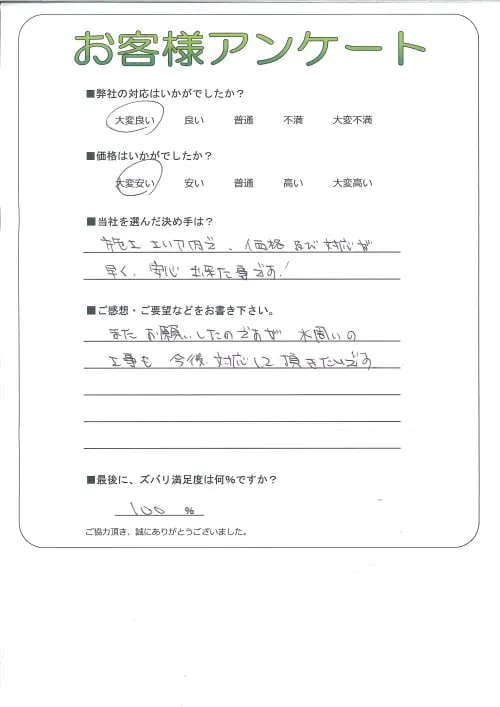 お客様アンケート
■弊社の対応はいかがでしたか？
大変良い 良い 普通 不満 大変不満
■価格はいかがでしたか？
大変安い 安い 普通 高い 大変高い
■当社を選んだ決め手は？
施工エリア内で、価格及び対応が
早く、安心出来た事です！
■ご感想・ご要望などをお書き下さい。
またお願いしたのですが水周りの
工事も今後対応して頂きたいです
■最後に、ズバリ満足度は何％ですか？
100 ％
ご協力頂き、誠にありがとうございました。